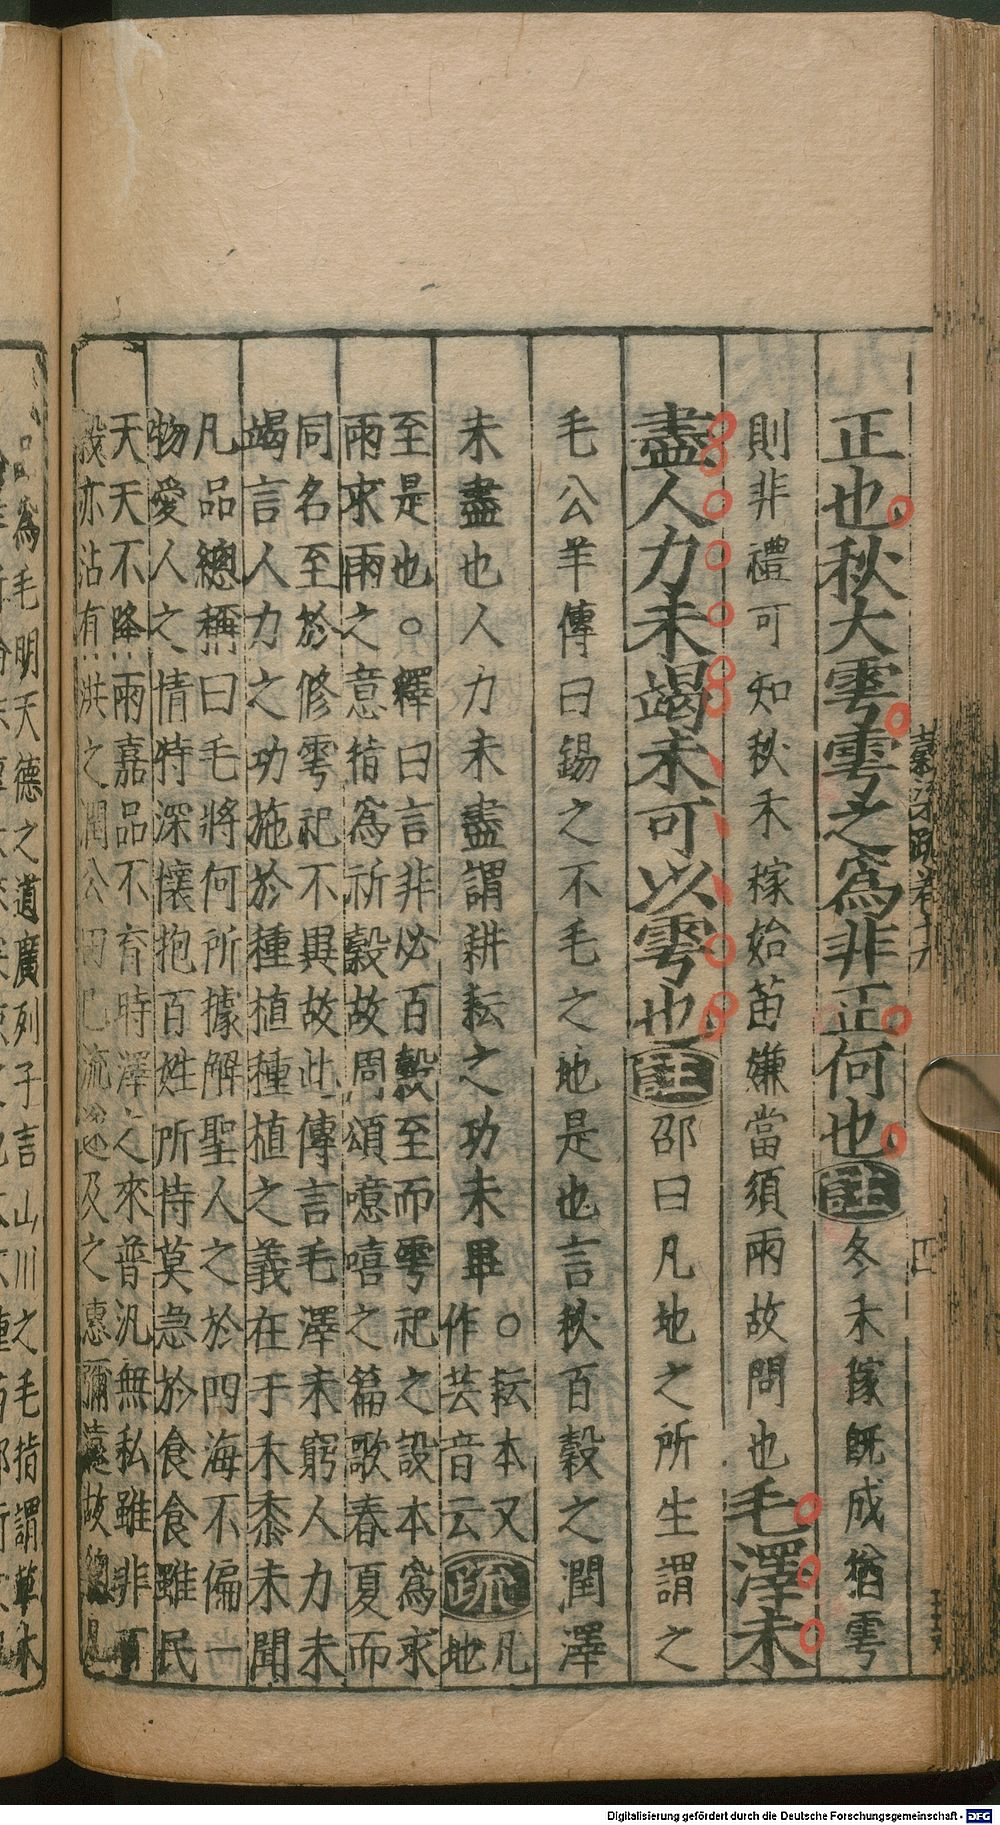 正也秋大雩雩之爲非正何也註冬禾稼既成猶雩
則非禮可知秋禾稼始苗嫌當須雨故問也毛澤未
盡人力未竭未可以雩也註邵曰凡地之所生謂之
毛公羊傳曰錫之不毛之地是也言秋百穀之潤澤
未盡也人力未盡謂耕耘之功未畢○耘本又
作芸音云疏凡
地
至是也○釋曰言非必百穀至而雩祀之設本爲求
雨求雨之意指爲祈穀故周頌噫嘻之篇歌春夏而
同名至於修雩祀不異故此傳言毛澤未窮人力未
竭言人力之功施於種植種植之義在于禾黍未聞
凡品總稱曰毛將何所據解聖人之於四海不偏一
物愛人之情特深懷抱百姓所恃莫急於食食雖民
天天不降雨嘉品不育時澤之來普汎無私雖非
穀亦沾有洪之潤公田已流及之惠彌遠故總
爲毛明天德之道廣列子言山川之毛指謂草木
疏卷十九
四
Digitalisierung gefördert durch die Deutsche Forschungsgemeinschaft - DFG